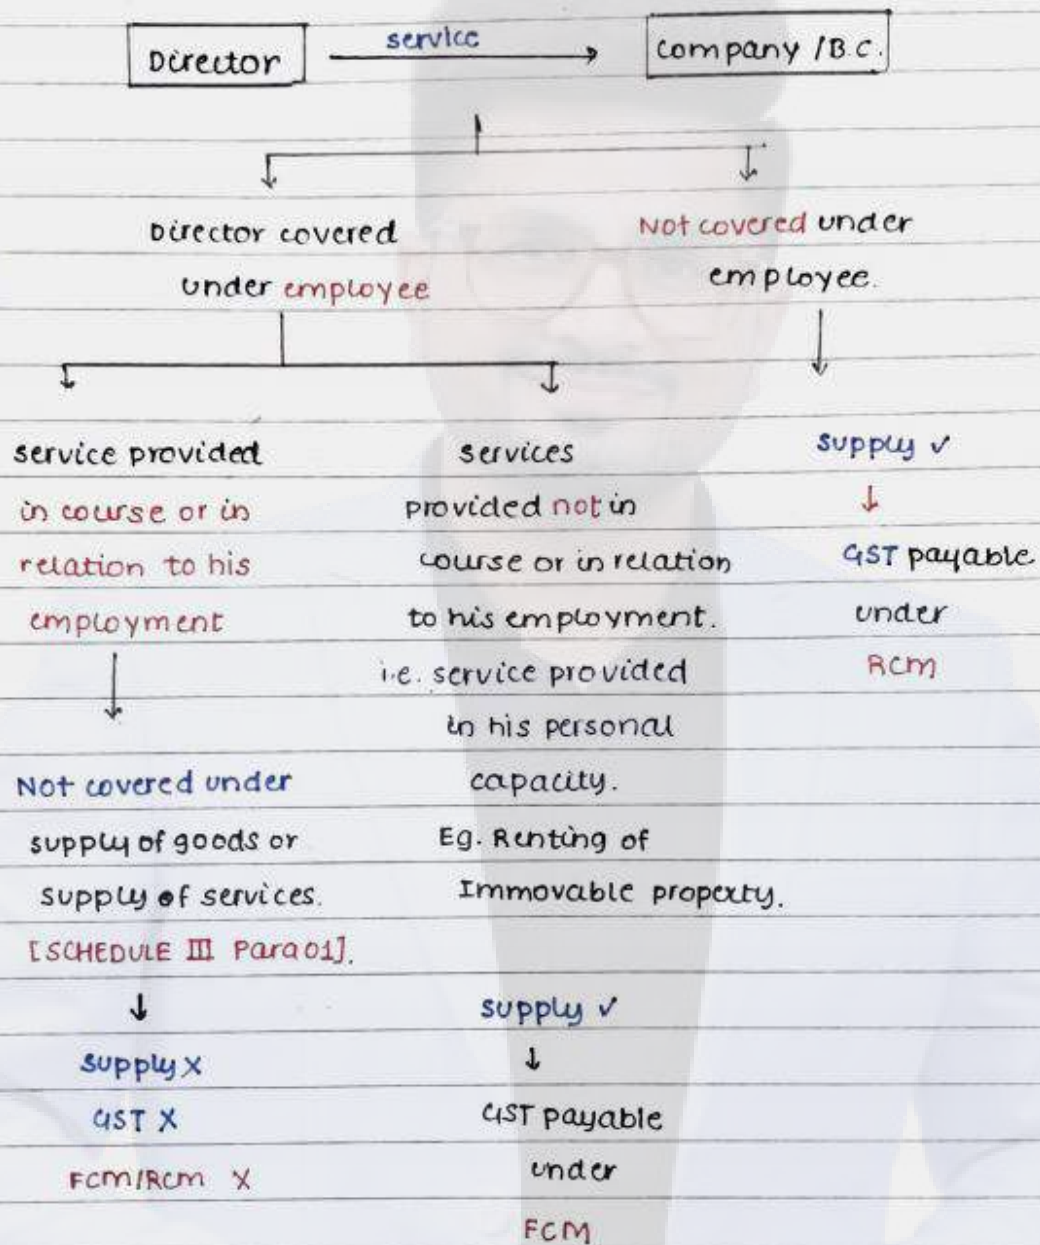 Director
service
Company /B.C.
Director covered
under employee
Not covered under
employee.
service provided
in course or in
relation to his
employment
Not covered under
supply of goods or
supply of services.
[SCHEDULE III Para 01].
↓
Supply X
GST X
FCM/RCM X
services
provided not in
course or in relation
to his employment.
i.e. service provided
in his personal
capacity.
Eg. Renting of
Immovable property.
supply ✓
↓
GST payable
under
FCM
supply ✓
↓
GST payable
under
RCM